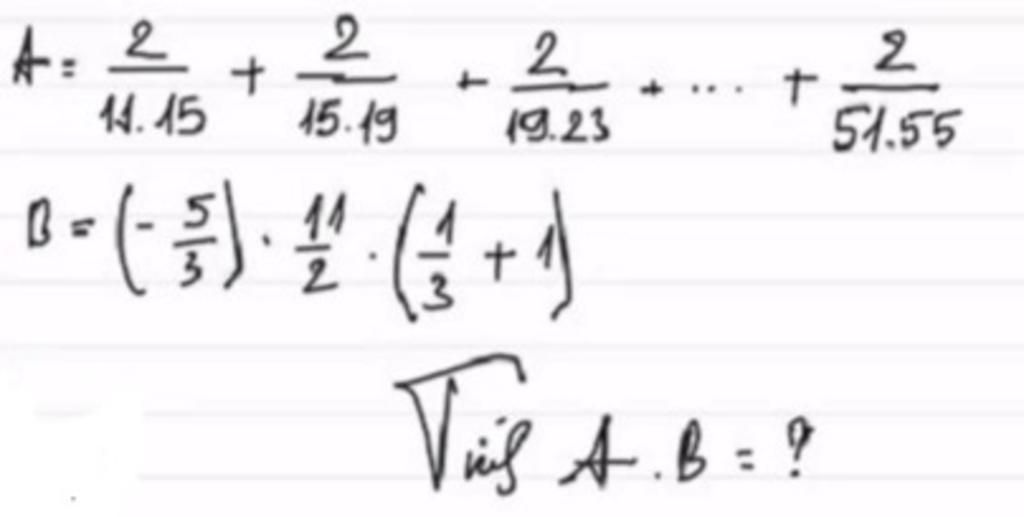 A = 2/11.15 + 2/15.19 + 2/19.23 + ... + 2/51.55
B = (- 5/3) . 11/2 . (1/3 + 1)
A . B = ?